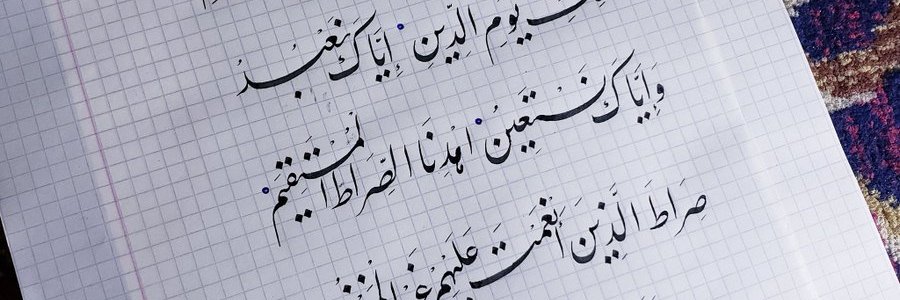 يَوْمِ الدِّينِ ° إِيَّاكَ نَعْبُدُ
وَإِيَّاكَ نَسْتَعِينُ ° اهْدِنَا الصِّرَاطَ الْمُسْتَقِيمَ °
صِرَاطَ الَّذِينَ أَنْعَمْتَ عَلَيْهِمْ غَيْرِ